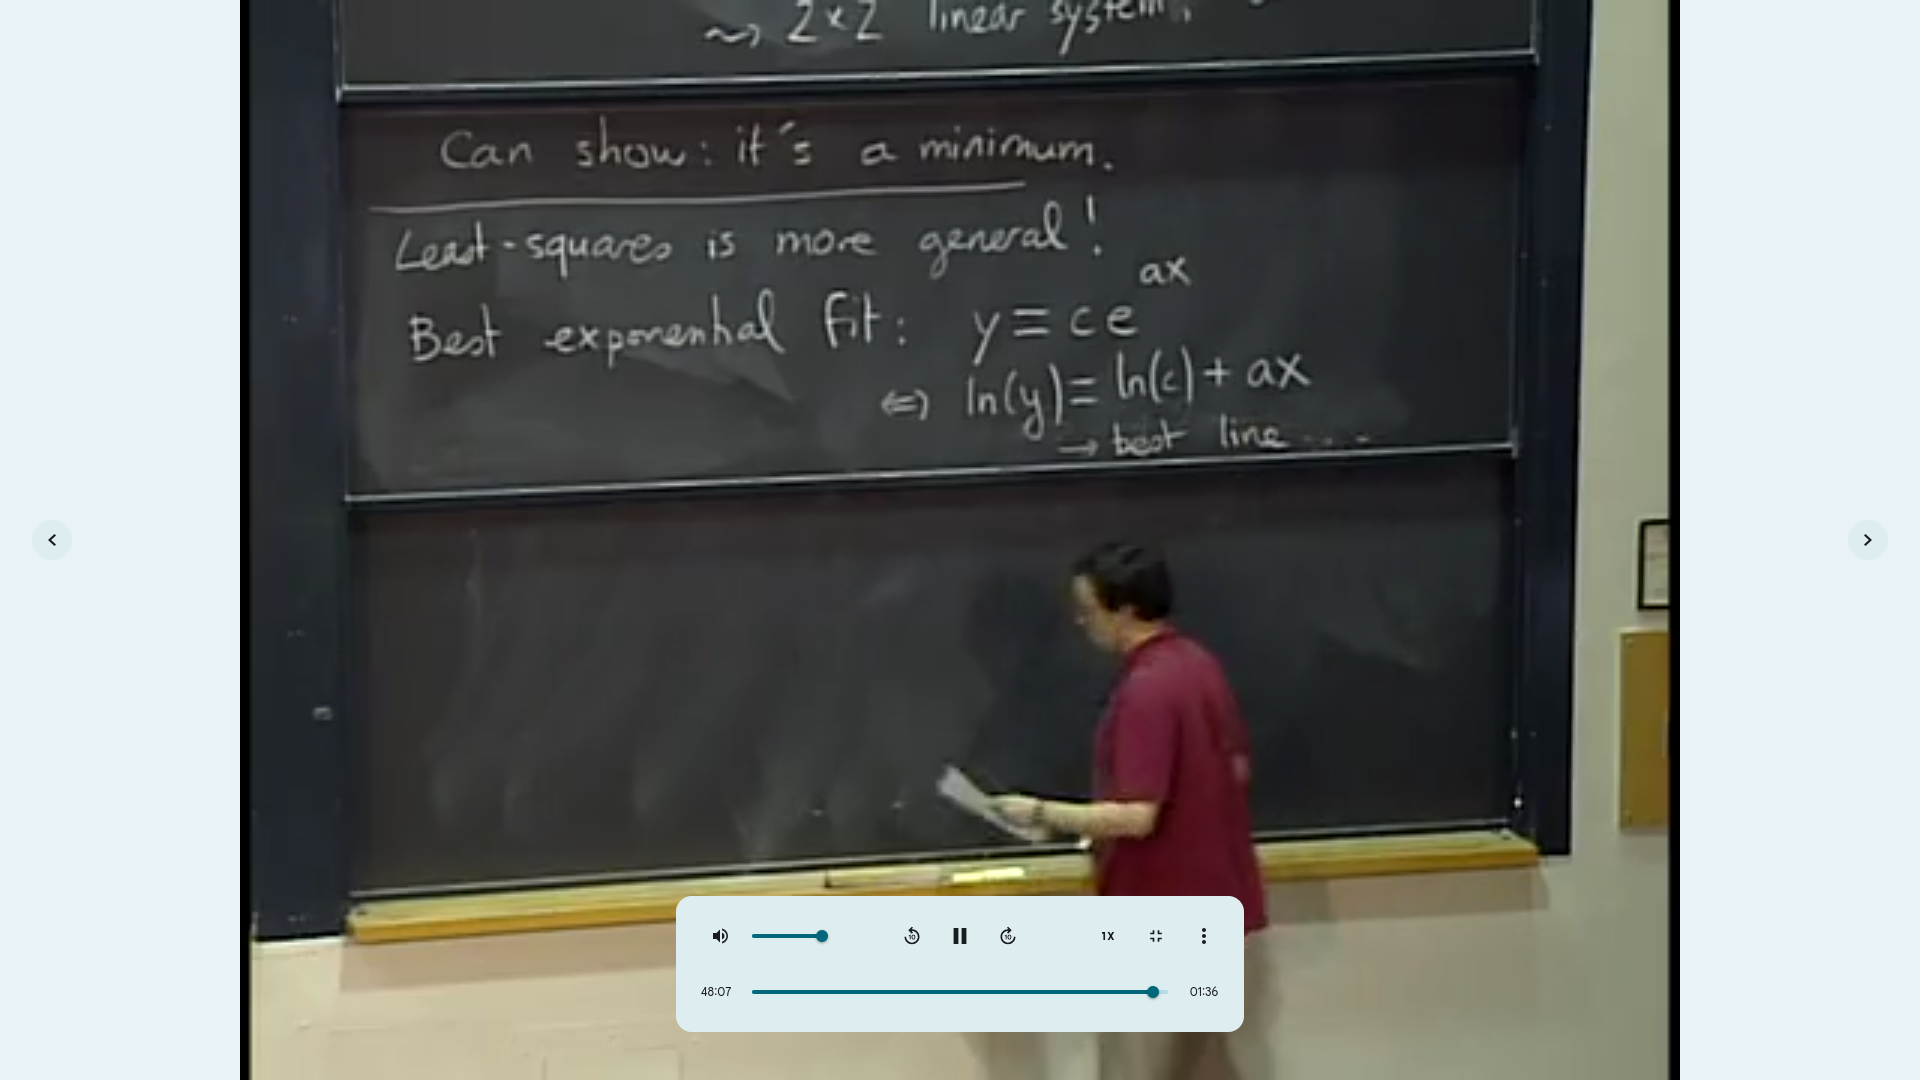 ~> 2x2 linear system.
Can show: it's a minimum.
Least-squares is more general!
Best exponential fit: y ≡ ce^ax
⇔ ln(y) ≡ ln(c) + ax
→ best line ....
1X
48:07
01:36